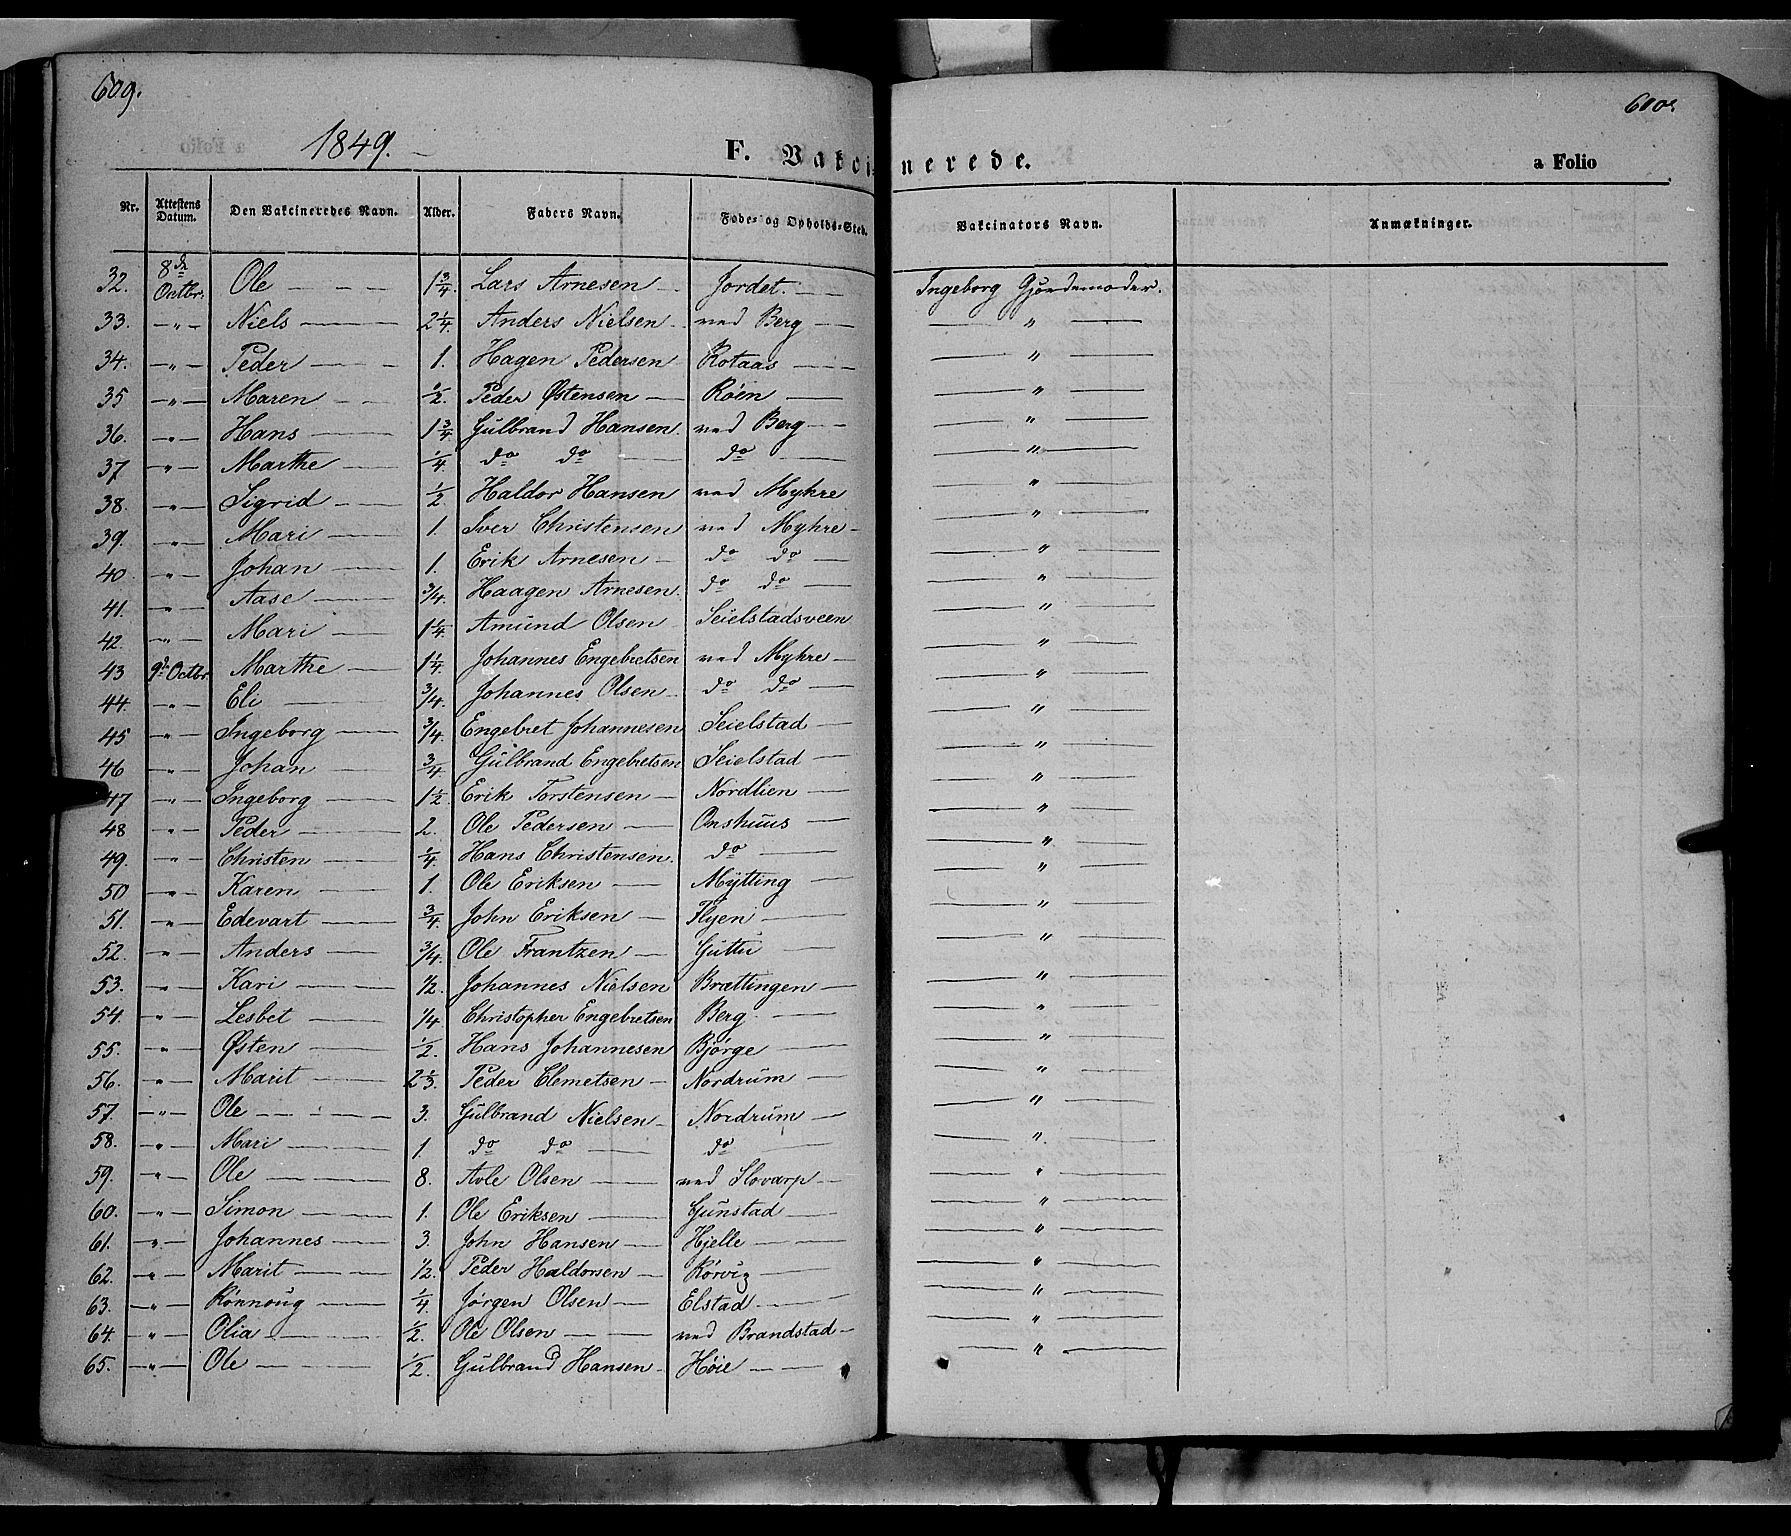 609.
610.
1849. –
F. Vakcinerede.
a Folio
Nr. Attestens Datum. Den Vakcineredes Navn. Alder. Faders Navn. Føde- og Opholds-Sted. Vakcinators Navn. Anmærkninger.
32. 8de Octbr. Ole – – – 1 3/4. Lars Arnesen – Jordet. – – Ingeborg Gjordemoder.
33. – " – Niels – 2 1/4. Anders Nielsen – ved Berg – – " –
34. – " – Peder – – 1. Hagen Pedersen Rotaas – – – " –
35 – " – Maren – – 1/2. Peder Østensen – Røen – – " –
36. – " – Hans – 1 3/4 Gulbrand Hansen. ved Berg – – " –
37 – " – Marthe – 1/4. do do – do – – " –
38. – " – Sigrid – 1/2 Haldor Hansen ved Myhre – " –
39. – " – Mari – 1. Iver Christensen ved Myhre – – " –
40. – " – Johan – 1. Erik Arnesen – do do – – " –
41. – " – Aase – 3/4. Haagen Arnesen. do do – – " –
42. – " – Mari – 1 1/4. Amund Olsen – Seielstadsveen – " –
43 9de Octbr Marthe – 1 1/4. Johannes Engebretsen ved Myhre – – " –
44. – " – Eli – 3/4. Johannes Olsen – do do – – " –
45 – " – Ingeborg – 3/4. Engebret Johannesen Seielstad – – " –
46 – " – Johan – 3/4 Gulbrand Engebretsen Seielstad – – " –
47 – " – Ingeborg – 1 1/2 Erik Torstensen – Nordlien – – " –
48 – " – Peder – 2. Ole Pedersen – Onshuus – – " –
49. – " – Christen – 1/4 Hans Christensen. do – – " –
50 – " – Karen – 1. Ole Eriksen – Mytting – – " –
51. – " – Edevart – 3/4 John Eriksen – Flyen – – " –
52. – " – Anders – 3/4 Ole Frantzen – Guttu – – " –
53. – " – Kari – 1/2. Johannes Nielsen Brættingen – – " –
54. – " – Lesbet – 1/4 Christopher Engebretsen Berg – – " –
55. – " – Østen – 1/2. Hans Johannesen Bjørge – – " –
56. – " – Marit – 2 1/3. Peder Clemetsen – Nordrum – – " –
57. – " – Ole – – – 3. Gulbrand Nielsen – Nordrum – – " –
58. – " – Mari – 1. do do – do – – " –
59. – " – Ole – 8. Avle Olsen – ved Slovarp – – " –
60. – " – Simon – 1. Ole Eriksen – Gunstad – – " –
61. – " – Johannes – 3. John Hansen – Hjelle – – – " –
62. – " – Marit – 1/2. Peder Haldorsen – Rørvig – – " –
63. – " – Rønnoug – 1/4 Jørgen Olsen – Elstad – – – " –
64. – " – Olia – 1/2. Ole Olsen – – ved Brandstad – – " –
65. – " – Ole – – 1/2 Gulbrand Hansen – Høie – – – " –